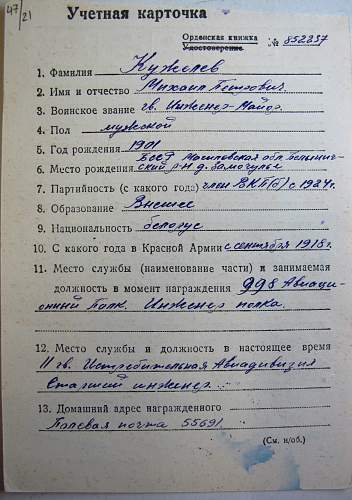 47/21
Учетная карточка
Орденская книжка
Удостоверение № 852237
1. Фамилия Кужелев
2. Имя и отчество Михаил Петрович.
3. Воинское звание гв. Инженер-Майор.
4. Пол мужской
5. Год рождения 1901
БССР Могилевская обл. Белынич-
6. Место рождения ский р-н д.
7. Партийность (с какого года) член ВКП(б) с 1924 г.
8. Образование Высшее
9. Национальность белорус
10. С какого года в Красной Армии с сентября
11. Место службы (наименование части) и занимаемая
должность в момент награждения 998 Авиаци-
онный Полк. Инженер полка.
12. Место службы и должность в настоящее время
11 гв. Истребительная Авиадивизия
Старший инженер.
13. Домашний адрес награжденного
Полевая почта 55691
(См. н/об.)